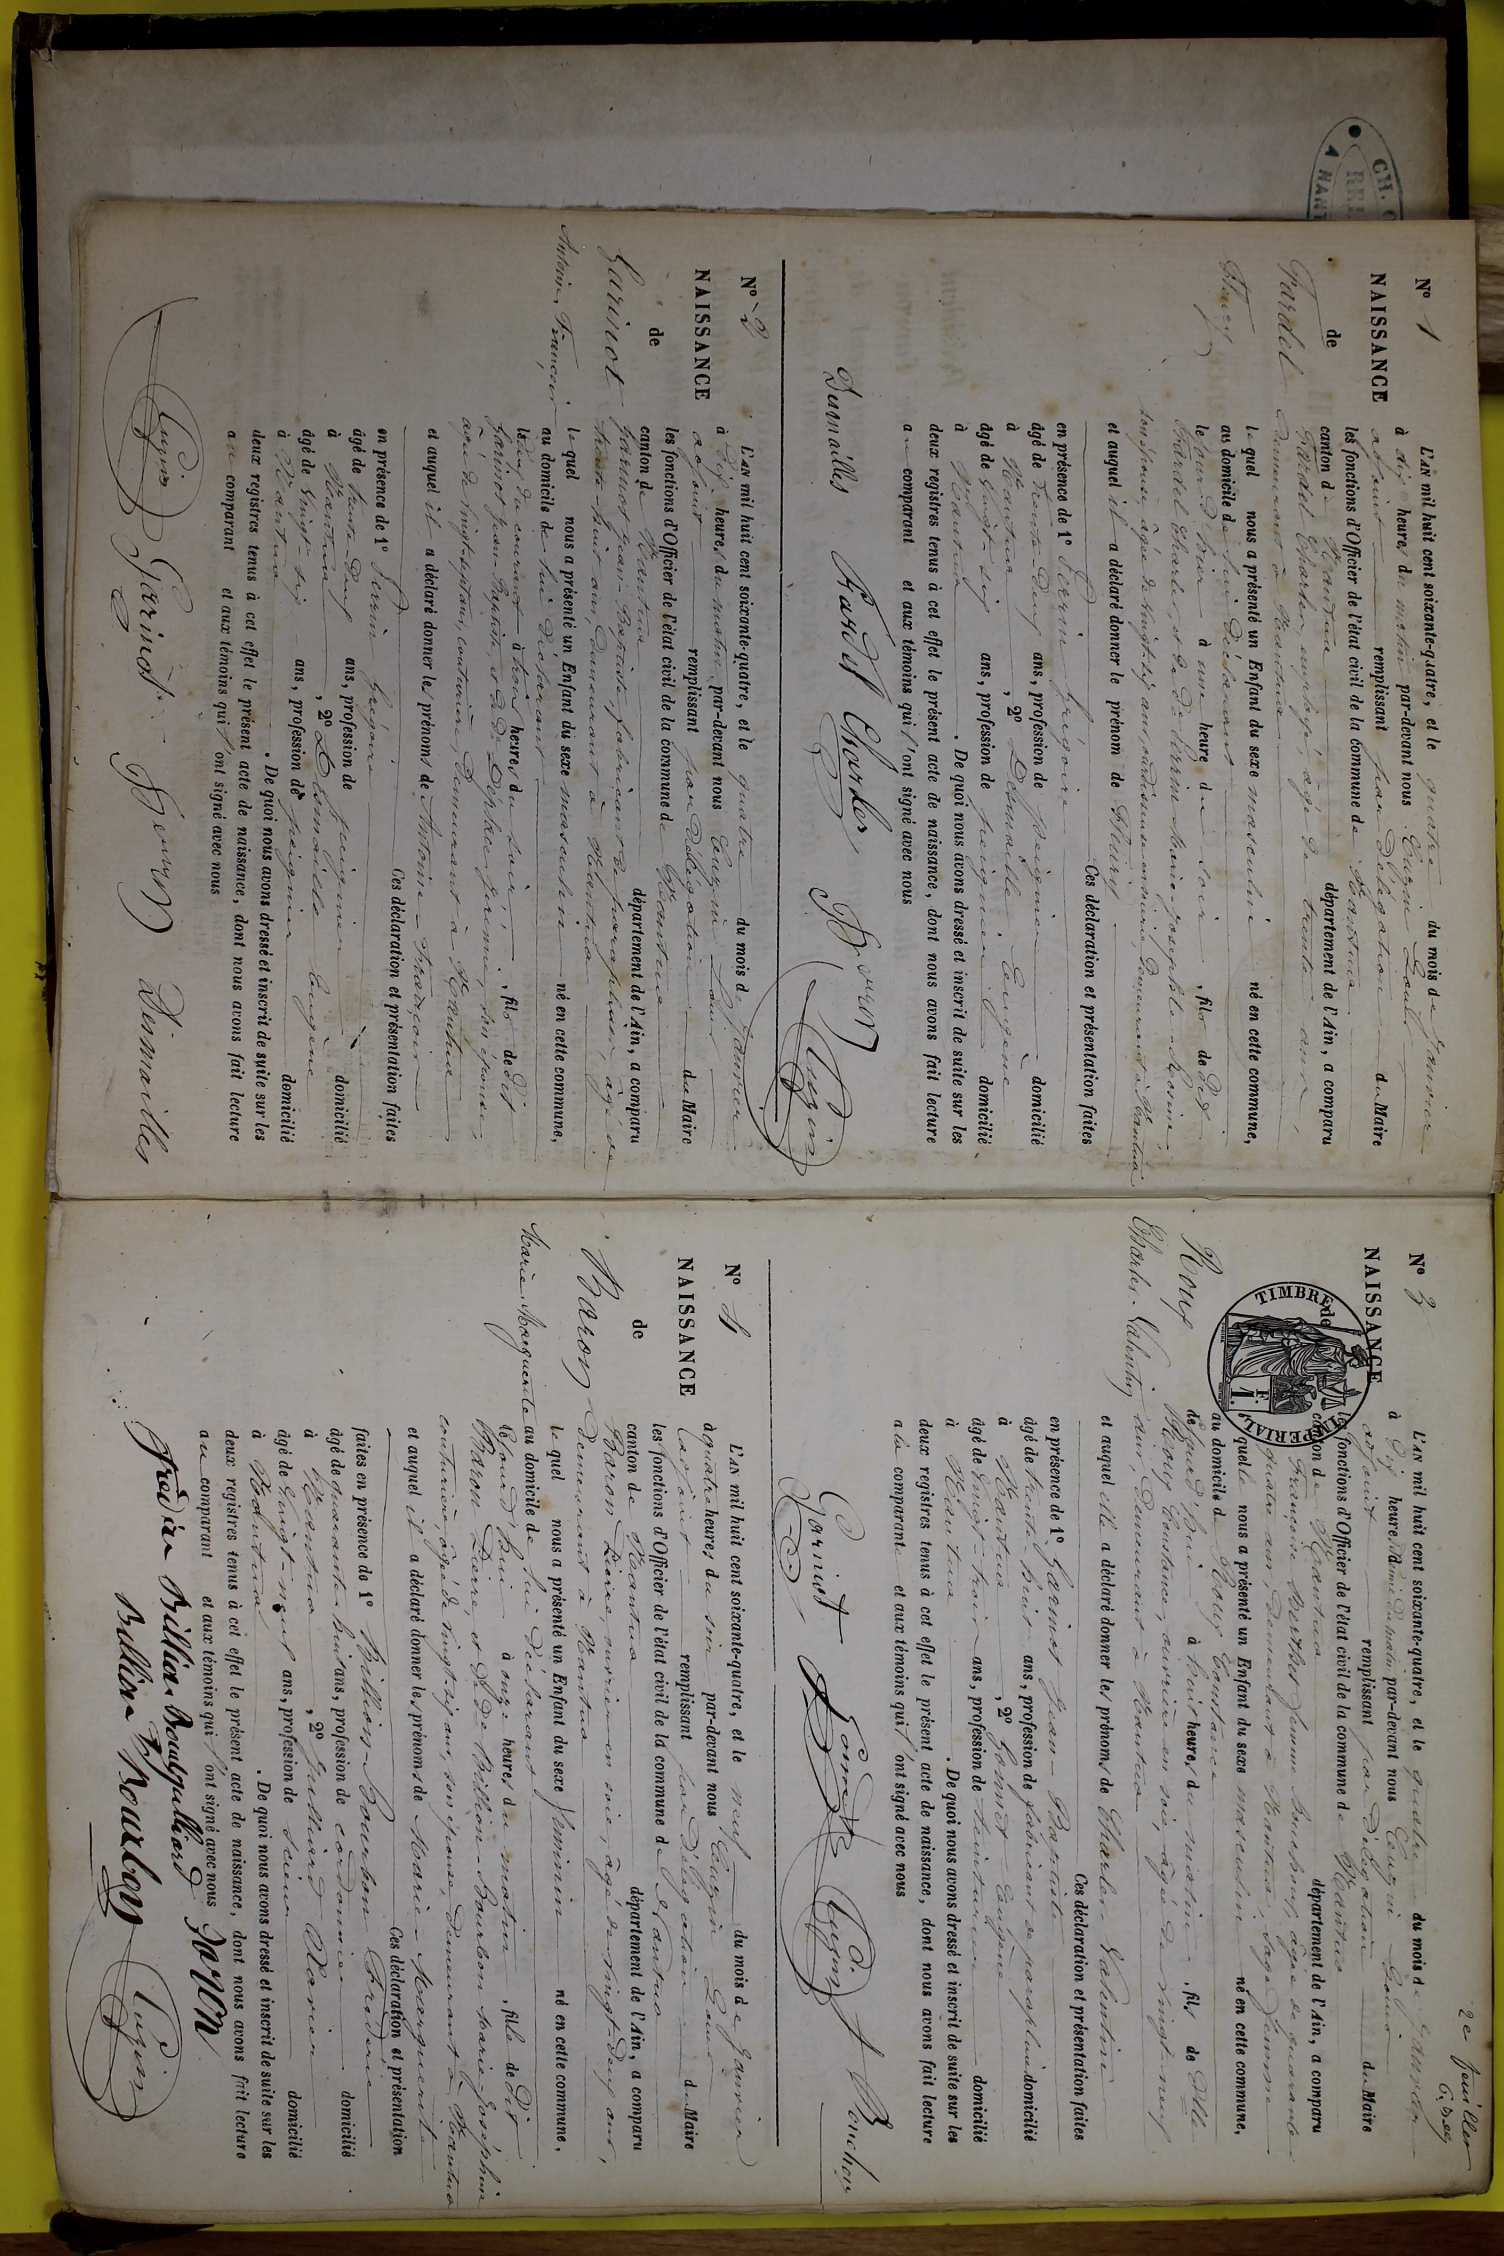 CH. C
NANT
N° 1
NAISSANCE
de
Fardel
Fleury
L'AN mil huit cent soixante-quatre, et le quatre du mois de Janvier
à dix heures du matin par-devant nous Eugin Louis
adjoint remplissant par Délégation du Maire
les fonctions d'Officier de l'état civil de la commune de Nantua
canton de Nantua département de l'Ain, a comparu
Fardel Charles, employé, âgé de trente ans,
demeurant à Nantua
lequel nous a présenté un Enfant du sexe masculin né en cette commune,
au domicile de lui déclarant
le jour d'hier à une heure du soir, fils de dit
Fardel Charles, et de dé Perrin Marie-Josephte
son épouse âgée de vingt-six ans, demeurant à Nantua
et auquel il a déclaré donner le prénom de Fleury
Ces déclaration et présentation faites
en présence de 1° Perrin Grégoire
âgé de trente-deux ans, profession de peignier domicilié
à Nantua, 2° Desmaille Eugène
âgé de vingt-six ans, profession de peignier domicilié
à Nantua. De quoi nous avons dressé et inscrit de suite sur les
deux registres tenus à cet effet le présent acte de naissance, dont nous avons fait lecture
au comparant et aux témoins qui l'ont signé avec nous
Desmailles Fardel Charles Perrin Eugin
N° 2
NAISSANCE
de
Garinot
Antoine, François
L'AN mil huit cent soixante-quatre, et le quatre du mois de Janvier
à dix heures du matin par-devant nous Eugin Louis
adjoint remplissant par Délégation du Maire
les fonctions d'Officier de l'état civil de la commune de Nantua
canton de Nantua département de l'Ain, a comparu
Garinot Jean-Baptiste, fabricant de parapluies, âgé de
trente-huit ans, demeurant à Nantua
lequel nous a présenté un Enfant du sexe masculin né en cette commune,
au domicile de lui déclarant
le du courant à trois heures du soir, fils de dit
Garinot Jean-Baptiste, et de dé son épouse,
âgée de vingt-sept ans, couturière, demeurant à Nantua
et auquel il a déclaré donner les prénoms de Antoine-François
Ces déclaration et présentation faites
en présence de 1° Perrin Grégoire
âgé de trente-deux ans, profession de peignier domicilié
à Nantua, 2° Desmaille Eugène
âgé de vingt-six ans, profession de peignier domicilié
à Nantua. De quoi nous avons dressé et inscrit de suite sur les
deux registres tenus à cet effet le présent acte de naissance, dont nous avons fait lecture
au comparant et aux témoins qui l'ont signé avec nous
Eugin Garinot Perrin Desmailles
2e feuillet
N° 3
NAISSANCE
TIMBRE IMPERIAL
1 F.
de
Roux
Charles-Valentin
L'AN mil huit cent soixante-quatre, et le quatre du mois de Janvier
à dix heures du matin par-devant nous Eugin Louis
adjoint remplissant par Délégation du Maire
les fonctions d'Officier de l'état civil de la commune de Nantua
canton de Nantua département de l'Ain, a comparu
Françoise Berthet femme âgée de quarante
quatre ans, demeurant à Nantua, sage femme
quelle nous a présenté un Enfant du sexe masculin né en cette commune,
au domicile de Roux Constance
le à huit heures du matin, fils de dlle
Roux Constance, ouvrière en soie, âgée de vingt-neuf
ans, demeurant à Nantua
et auquel elle a déclaré donner les prénoms de Charles Valentin
Ces déclaration et présentation faites
en présence de 1° Garinot Jean-Baptiste
âgé de trente-huit ans, profession de fabricant de parapluies domicilié
à Nantua, 2° Eugène
âgé de vingt-trois ans, profession de teinturier domicilié
à Nantua. De quoi nous avons dressé et inscrit de suite sur les
deux registres tenus à cet effet le présent acte de naissance, dont nous avons fait lecture
à la comparante et aux témoins qui l'ont signé avec nous
Garinot Eugin
N° 4
NAISSANCE
de
Baron
Marie, Marguerite
L'AN mil huit cent soixante-quatre, et le neuf du mois de Janvier
à quatre heures du soir par-devant nous Eugin Louis
adjoint remplissant par Délégation du Maire
les fonctions d'Officier de l'état civil de la commune de Nantua
canton de Nantua département de l'Ain, a comparu
Baron Pierre, ouvrier en soie, âgé de vingt-deux ans,
demeurant à Nantua
lequel nous a présenté un Enfant du sexe féminin né en cette commune,
au domicile de lui déclarant
le jour d'hui à onze heures du matin, fille de dit
Baron Pierre, et de dé Billion-Bourbon Marie-Joséphine
couturière, âgée de vingt-six ans, son épouse, demeurant à Nantua
et auquel il a déclaré donner les prénoms de Marie-Marguerite
Ces déclaration et présentation
faites en présence de 1° Billion-Bourbon Frédéric
âgé de quarante-huit ans, profession de cordonnier domicilié
à Nantua, 2°
âgé de vingt-neuf ans, profession de domicilié
à Nantua. De quoi nous avons dressé et inscrit de suite sur les
deux registres tenus à cet effet le présent acte de naissance, dont nous avons fait lecture
au comparant et aux témoins qui l'ont signé avec nous
Eugin